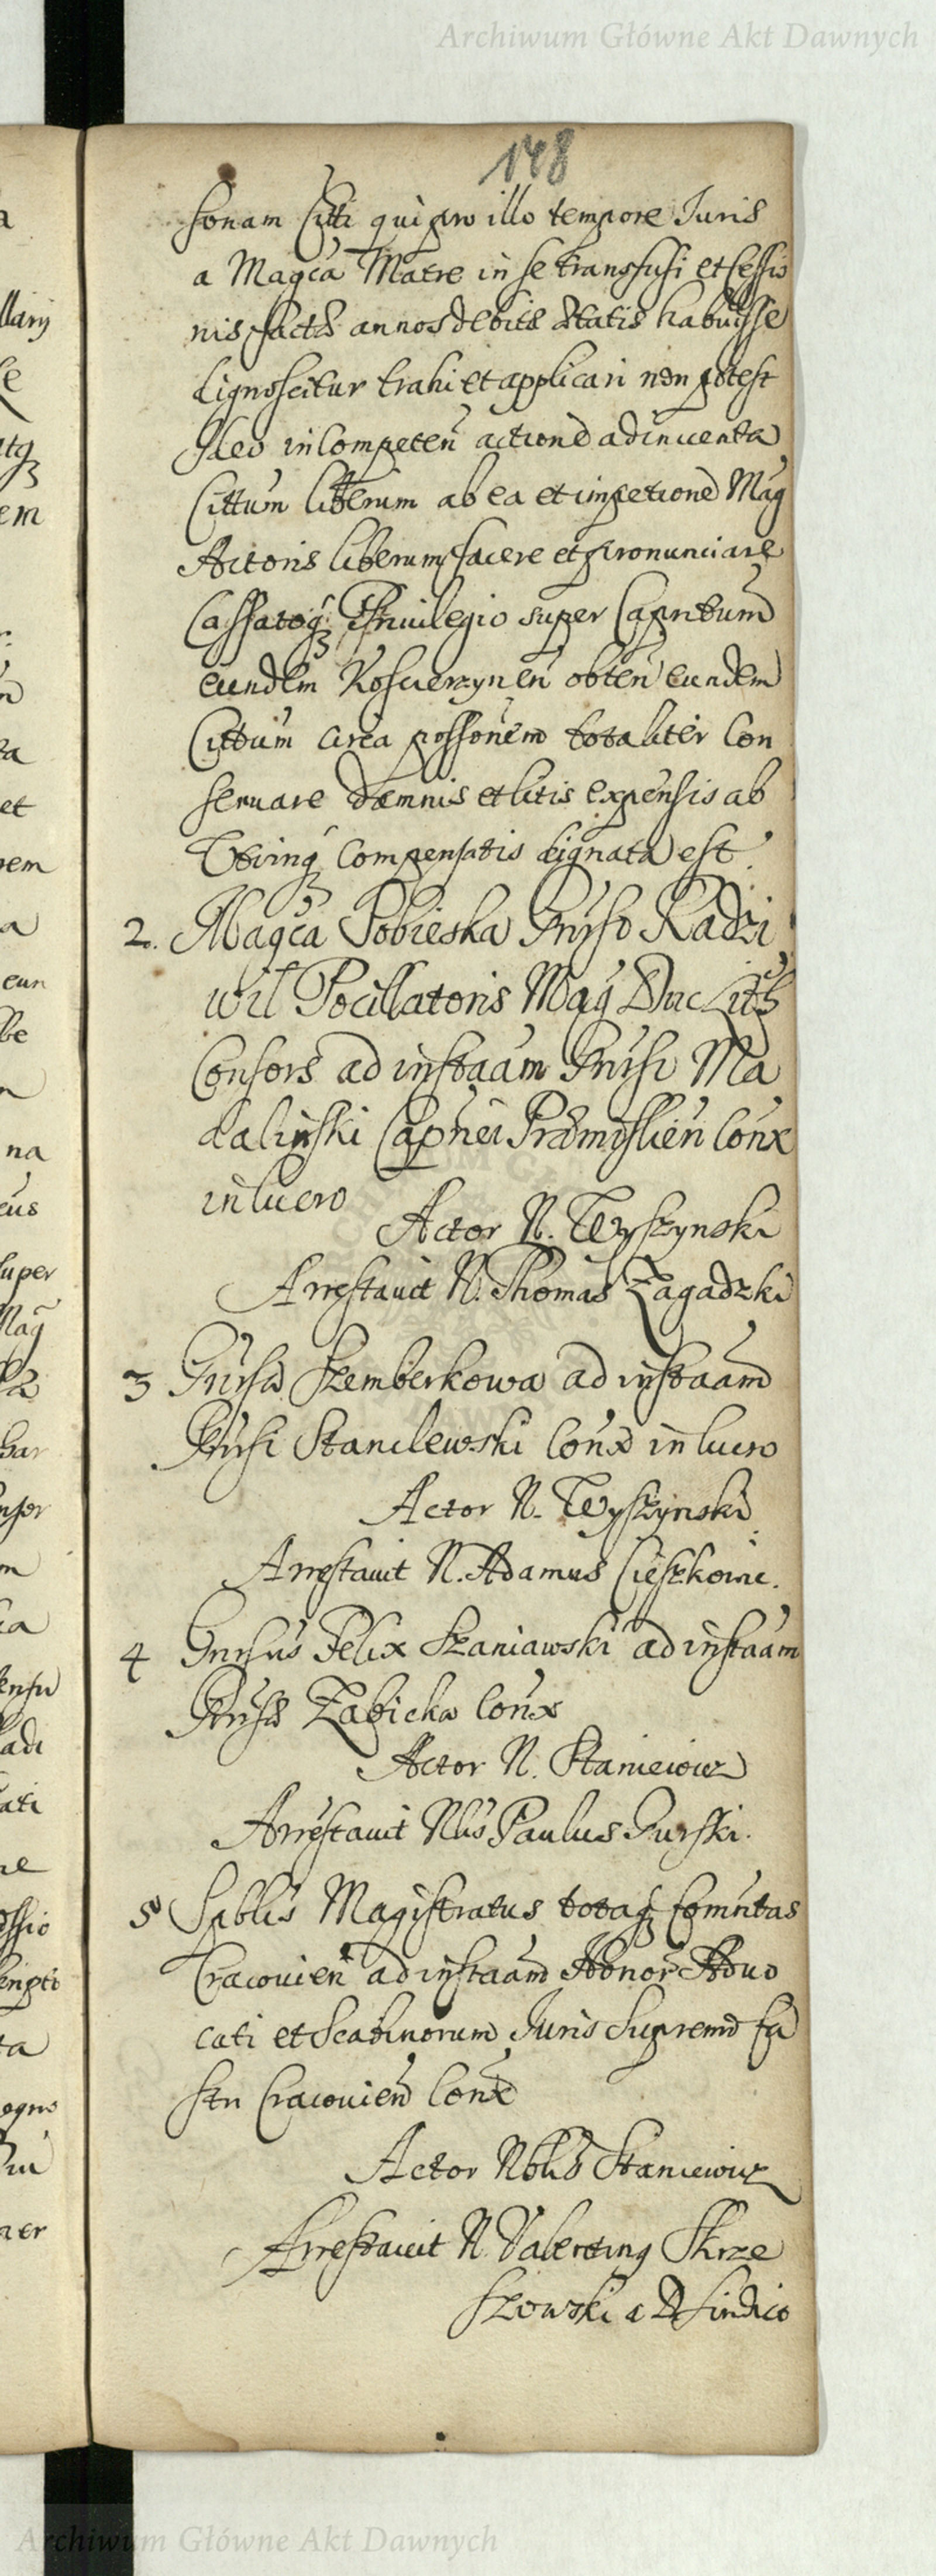 Archiwum Główne Akt Dawnych
148
sonam Citti qui pro illo tempore Juris
a Magca Matre in se transfusi et Cessio
nis factæ annos debitæ ætatis habuisse
dignoscitur trahi et applicari non potest
Ideo incompeten actione adinventa
Cittum liberum ab ea et impetione Mag
Actoris liberum facere et pronunciare
Cassatoq Privilegio super Capntum
eundem Koscierzynen obten eundem
Cittum circa possonem totaliter Con
servare Damnis et litis expensis ab
Utrinq compensatis dignata est
2. Magca Sobieska Gnrso Radzi
wil Pocillatoris Mag Duc Lith
Consors ad instaam Gnrsi Ma
dalinski Capnei Præmyslien Conx
in lucro
Actor N. Wyszynski
Arrestavit N. Thomas Zagadzki
3 Gnrsa Szemberkowa ad instaam
Gnrsi Stanilewski Conx in lucro
Actor N. Wyszynski
Arrestavit N. Adamus Cieszkowic.
4 Gnrsus Felix Szaniawski ad instaam
Gnrsæ Zabicka Conx
Actor N. Staniewicz
Arrestavit Nlis Paulus Gurski.
5 Spblis Magistratus totaq Comntas
Cracovien ad instaam Honor Advo
cati et Scabinorum Juris Supremi Ca
stri Cracovien Conx
Actor Nblis Staniewicz
Arrestavit N. Valentinq Skrze
szowski a D Sindico
Archiwum Główne Akt Dawnych